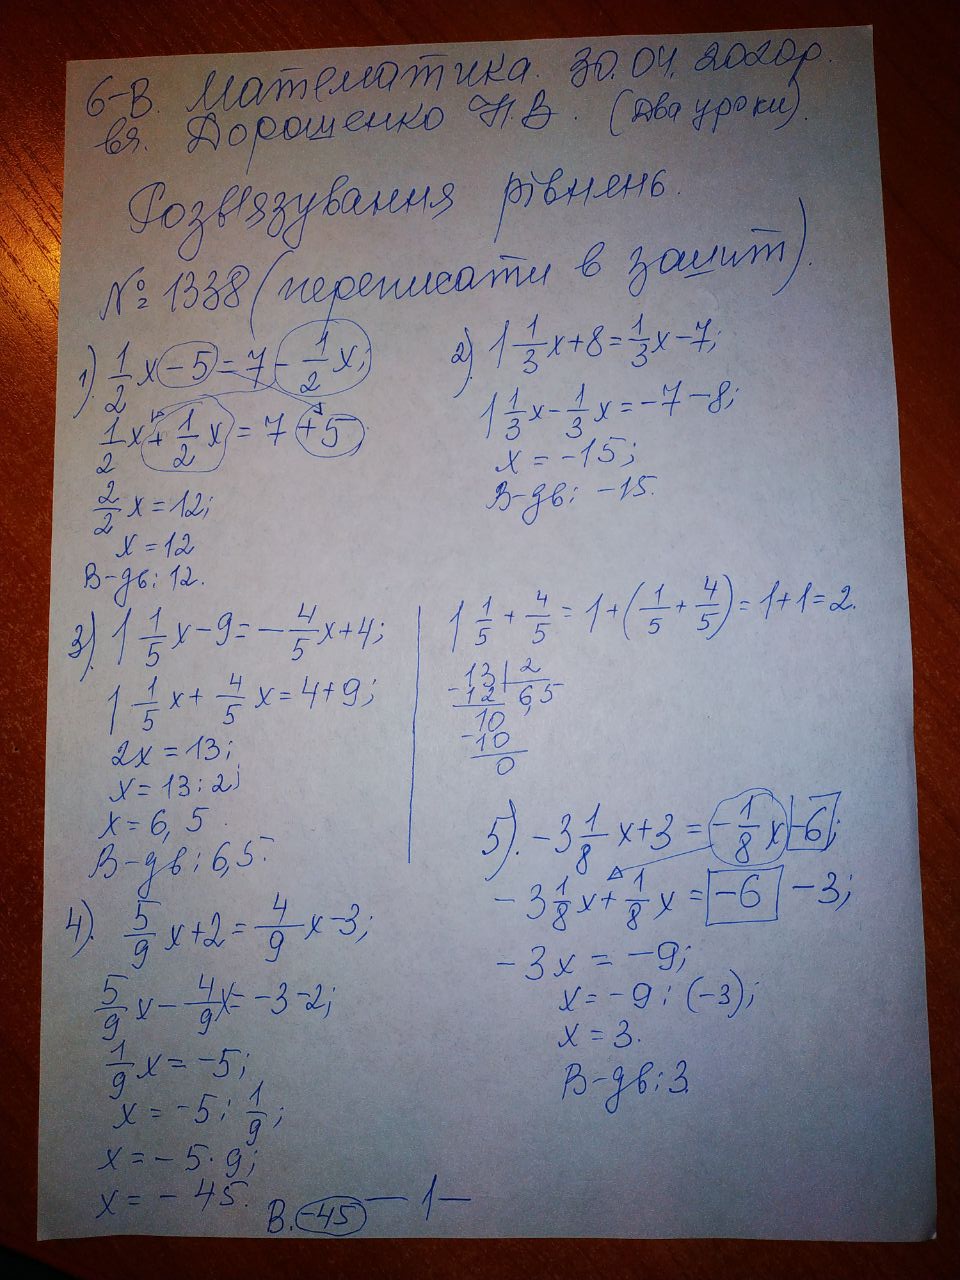 6-В. Математика. 30.04.2020р.
вч. Дорошенко Н.В. (Два уроки).
Розв'язування рівнень.
№ 1338 (переписати в зошит).
1) 1/2 x - 5 = 7 - 1/2 x;
1/2 x + 1/2 x = 7 + 5
2/2 x = 12;
x = 12
В-дв: 12.
2) 1 1/3 x + 8 = 1/3 x - 7;
1 1/3 x - 1/3 x = -7 - 8;
x = -15;
В-дв: -15.
3) 1 1/5 x - 9 = -4/5 x + 4;
1 1/5 x + 4/5 x = 4 + 9;
2x = 13;
x = 13 : 2;
x = 6,5
В-дв: 6,5.
1 1/5 + 4/5 = 1 + (1/5 + 4/5) = 1 + 1 = 2.
-13 | 2
12 6,5
10
-10
0
4). 5/9 x + 2 = 4/9 x - 3;
5/9 x - 4/9 x = -3 - 2;
1/9 x = -5;
x = -5 : 1/9;
x = -5 · 9;
x = -45.
В. -45
5). -3 1/8 x + 3 = -1/8 x - 6;
-3 1/8 x + 1/8 x = -6 - 3;
-3x = -9;
x = -9 : (-3);
x = 3.
В-дв: 3.
-1-